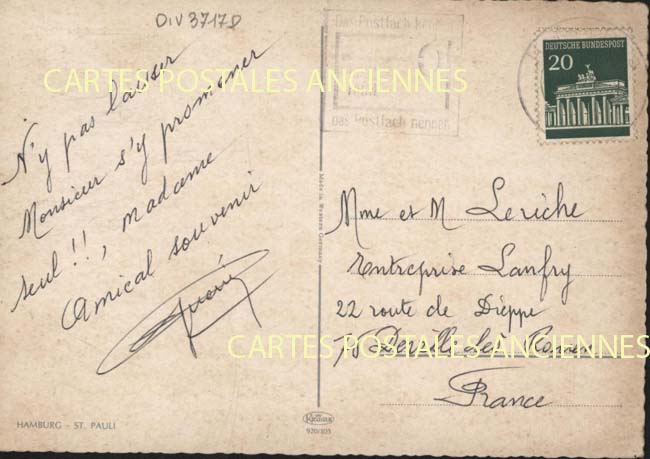 DIV3717D
CARTES POSTALES ANCIENNES
N'y pas laisser
Monsieur s'y promener
seul !!, madame
Amical souvenir
HAMBURG - ST. PAULI
Das Postfach
das Postfach nennen
DEUTSCHE BUNDESPOST
20
Made in Western Germany
Krüger
920/103
Mme et M Leriche
Entreprise Lanfry
22 route de Dieppe
Deville les Rouen
France
CARTES POSTALES ANCIENNES